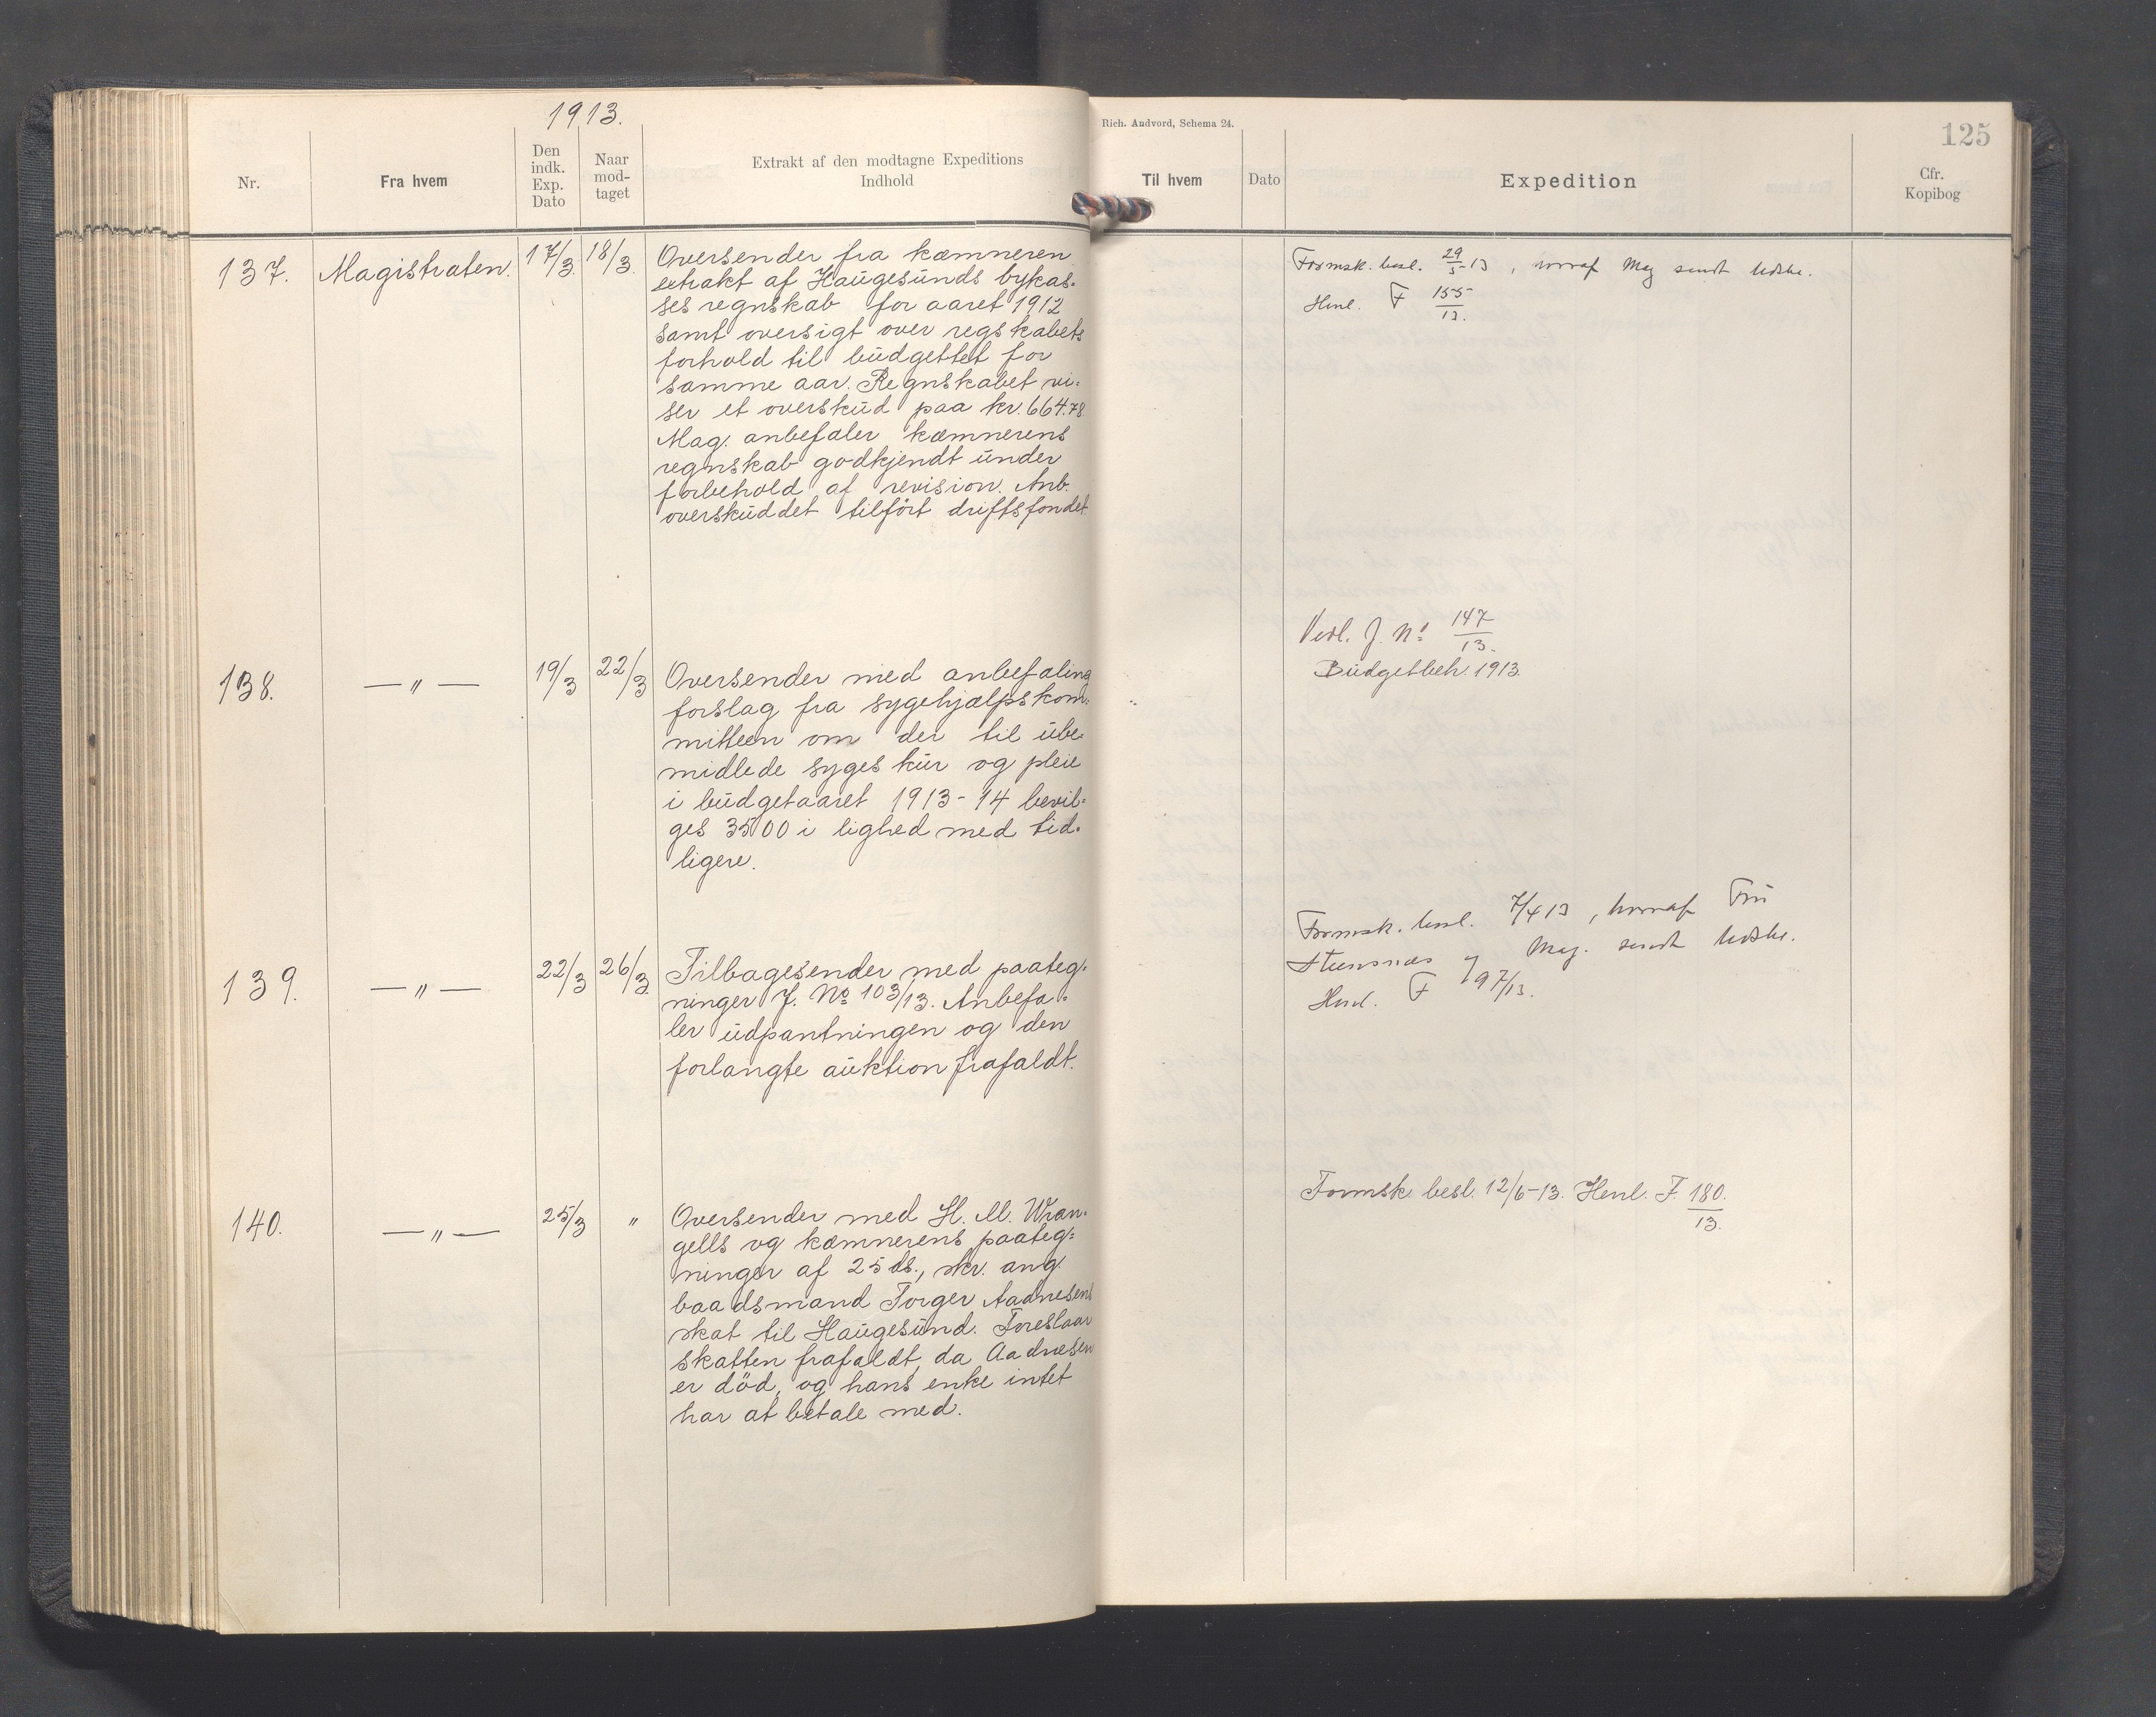 1913.
Nr.
Fra hvem
Den indk. Exp. Dato
Naar mod- taget
Extrakt af den modtagne Expeditions Indhold
137. Magistraten. 17/3. 18/3.
Oversender fra kæmneren
extrakt af Haugesunds bykas-
ses regnskab for aaret 1912
samt oversigt over regskabets
forhold til budgettet for
samme aar. Regnskabet vi-
ser et overskud paa kr. 664.78
Mag. anbefaler kæmnerens
regnskab godkjendt under
forbehold af revision. Anb.
overskuddet tilført driftsfondet
138. — " — 19/3 22/3
Oversender med anbefaling
forslag fra sygehjælpskom-
mitteen om der til ube-
midlede syges kur og pleie
i budgetaaret 1913-14 bevil-
ges 3500 i lighed med tid-
ligere.
139. — " — 22/3 26/3
Tilbagesender med paateg-
ninger J. No 103/13. Anbefa-
ler udpantningen og den
forlangte auktion frafaldt.
140. — " — 25/3 "
Oversender med H. M. Wran-
gells og kæmnerens paateg-
ninger af 25 ds., skr. ang.
baadsmand Torger Aadnesens
skat til Haugesund. Foreslaar
skatten frafaldt, da Aadnesen
er död, og hans enke intet
har at betale med.
Rich. Andvord, Schema 24.
125
Til hvem
Dato
Expedition
Cfr. Kopibog
Formsk. besl. 29/5-13, hvoraf Mag sendt Udskr.
Henl. F 155/13.
Vedl. J. No 147/13.
Budgetbeh. 1913.
Formsk. besl. 7/4 13, hvoraf Fru
og Mag. sendt Udskr.
Henl. F 97/13.
Formsk. besl. 12/6-13. Henl. F. 180/13.